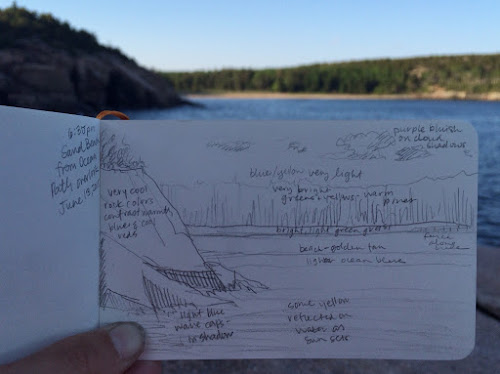 6:30 pm
Sand Beach
from Ocean
Path
June 19, 20
purple bluish
on cloud
shadows
blue/yellow very light
very bright
greens-yellows, warm
very cool
rock colors
contrast warmth,
blues & cool
reds
bright light green
beach-golden tan
lighter ocean blue
light blue
wave caps
in shadow
some yellow
reflected on
water as
sun sets